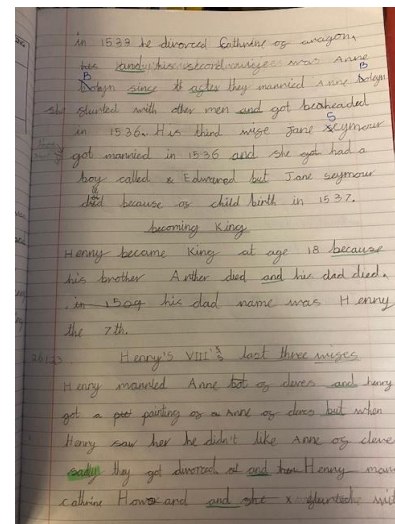 in 1539 he divorced Cathrine of aragon,
his second was Anne
Bolyn since after they married Anne bolyn
she flurted with other men and got beaheaded
in 1536. His third wife Jane Seymour
got married in 1536 and she got had a
boy called Edward but Jane seymour
died because of child birth in 1537.
becoming King
Henry became King at age 18 because
his brother Arther died and his dad died.
in 1509 his dad name was Henry
the 7th.
Henry's VIII's last three wifes
Henry married Anne of cleves and henry
got a painting of a Anne of cleves but when
Henry saw her he didn't like Anne of cleve
sadly they got divorced and Henry
cathrine Howard and she x